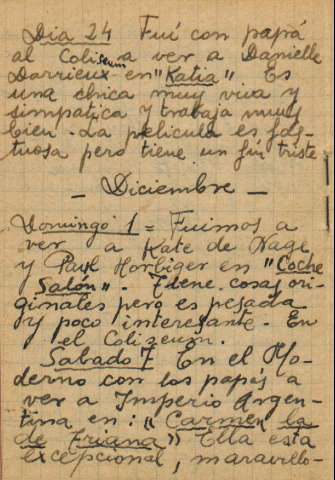 Dia 24 Fuí con papá
al Coliseum a ver a Danielle
Darrieux en "Katia" Es
una chica muy viva y
simpatica y trabaja muy
bien. La pelicula es fas-
tuosa pero tiene un fín triste.
- Diciembre -
Domingo 1 = Fuimos a
ver a Kate de Nagy
y Paul Horbiger en "Coche
Salón". Tiene cosas ori-
ginales pero es pesada
y poco interesante. En
el Coliseum.
Sabado 7 En el Mo-
derno con los papás a
ver a Imperio Argen-
tina en: "Carmen la
de Triana" Ella esta
excepcional, maravillo-